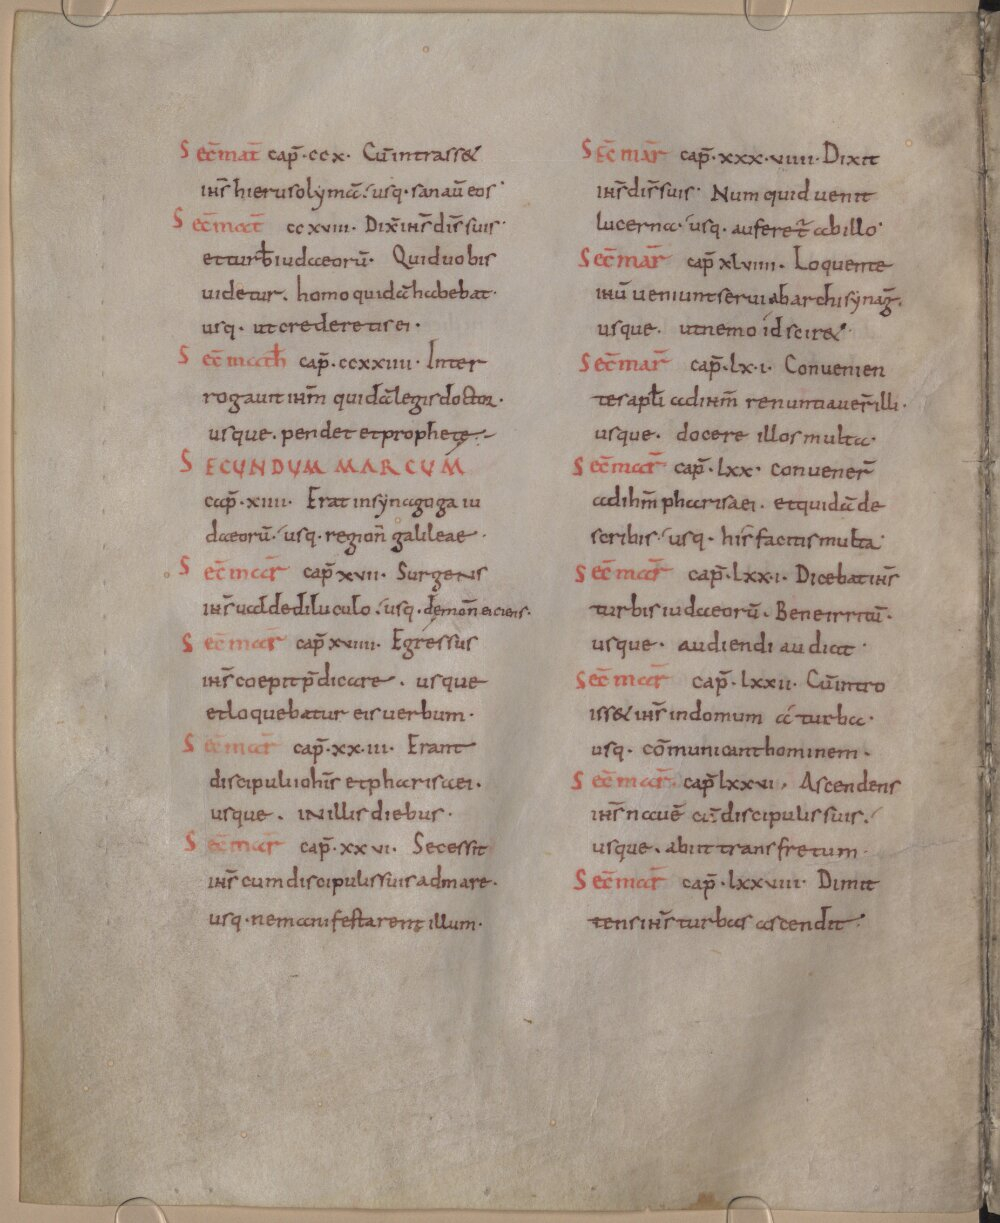 Sec̄ mat̄ cap̄·ccx· Cū intrass&
ihs̄ hierusolymā· usq· sanau̅ eos·
Sec̄ mat̄ ccxviii· Dix̄ ihs̄ dis̄ suis·
et turb̄ iudaeorū· Quid uobis
uidetur· homo quidā habebat·
usq· ut crederetis ei·
Sec̄ math̄ cap̄·ccxxiiii· Inter
rogauit ihm̄ quidā legis doctor·
usque· pendet et prophetę·
SECUNDUM MARCUM
cap̄·xiiii· Erat in synagoga iu
daeorū· usq· region̄ galileae·
Sec̄ mar̄ cap̄ xvii· Surgens
ihs̄ ualde diluculo· usq· dęmon̄ eiciens·
Sec̄ mar̄ cap̄ xviiii· Egressus
ihs̄ coepit p̄dicare· usque
et loquebatur eis uerbum·
Sec̄ mar̄ cap̄·xx·iii· Erant
discipuli iohis̄ et pharisaei·
usque· in illis diebus·
Sec̄ mar̄ cap̄·xxvi· Secessit
ihs̄ cum discipulis suis ad mare·
usq· ne manifestarent illum·
Sec̄ mar̄ cap̄·xxx·viiii· Dixit
ihs̄ dis̄ suis· Numquid uenit
lucerna· usq· auferet̄ ab illo·
Sec̄ mar̄ cap̄ xlviiii· Loquente
ihū ueniunt serui ab archisynaḡ·
usque· ut nemo id scir&·
Sec̄ mar̄ cap̄·lx·i· Conuenien
tes apłi ad ihm̄ renuntiauer̄ illi·
usque· docere illos multa·
Sec̄ mar̄ cap̄·lxx· conuener̄
ad ihm̄ pharisaei· et quidā de
scribis· usq· his̄ facitis multa·
Sec̄ mar̄ cap̄·lxx·i· Dicebat ihs̄
turbis iudaeorū· Bene irritū·
usque· audiendi audiat·
Sec̄ mar̄ cap̄·lxxii· Cū intro
iss& ihs̄ in domum a turba·
usq· cōmunicant hominem·
Sec̄ mar̄· cap̄ lxxvi· Ascendens
ihs̄ nauē cū discipulis suis·
usque· abiit trans fretum·
Sec̄ mar̄ cap̄·lxxviii· Dimit
tens ihs̄ turbas ascendit·